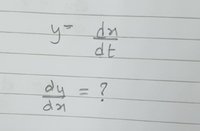 y = dx/dt
dy/dx = ?